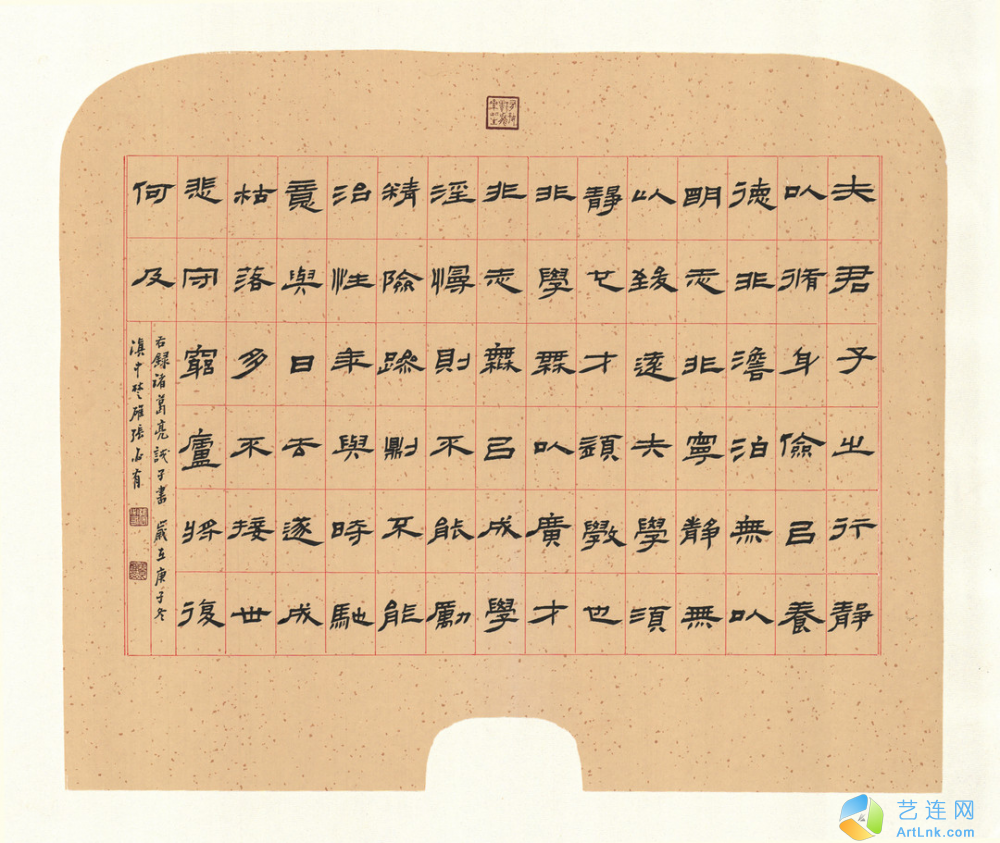 夫君子之行靜
以脩身儉以養
德非澹泊無以
明志非寧靜無
以致遠夫學須
靜也才須學也
非學無以廣才
非志無以成學
淫慢則不能勵
精險躁則不能
治性年與時馳
意與日去遂成
枯落多不接世
悲守窮廬將復
何及
右錄諸葛亮誡子書 歲在庚子冬
滇中楚雄張
艺连网
ArtLnk.com